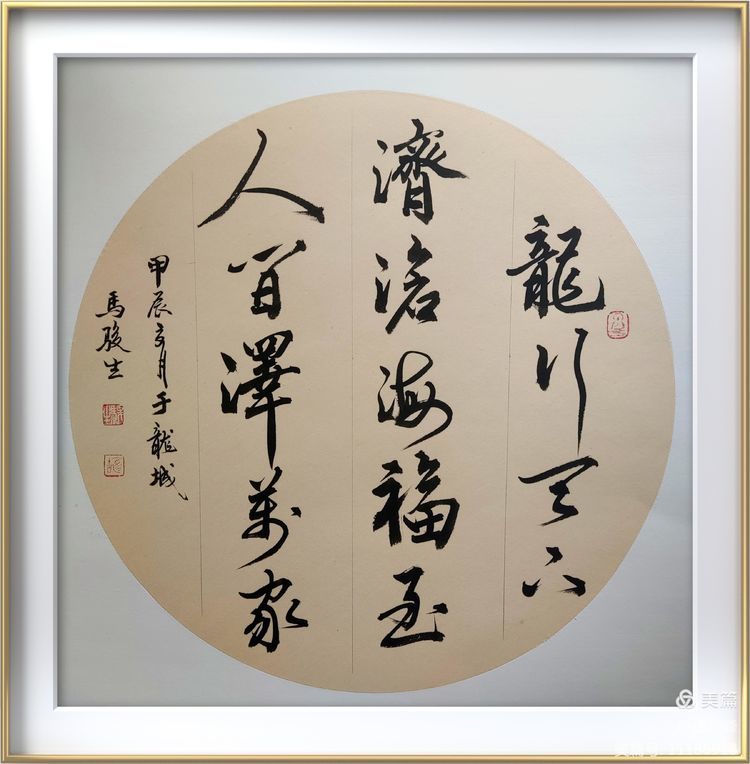 龍行天下
濟滄海福至
人間澤萬家
甲辰月于龍城
馬駿生
美篇